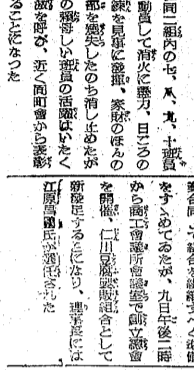 同二組內の七、八、九、十班員
動員して消火に盡力、日ごろの
練を見事に發揮、家財のほんの
部を燒失したのち消し止めたが
の賴母しい班員の活躍はいたく
激を呼び、近く同町會から表彰
ることになつた
をすゝめてゐたが、九日午後二時
から商工會議所會議室で創立總會
を開催、仁川豆腐製販組合として
新發足することになり、理事長には
江原昌國氏が選任された